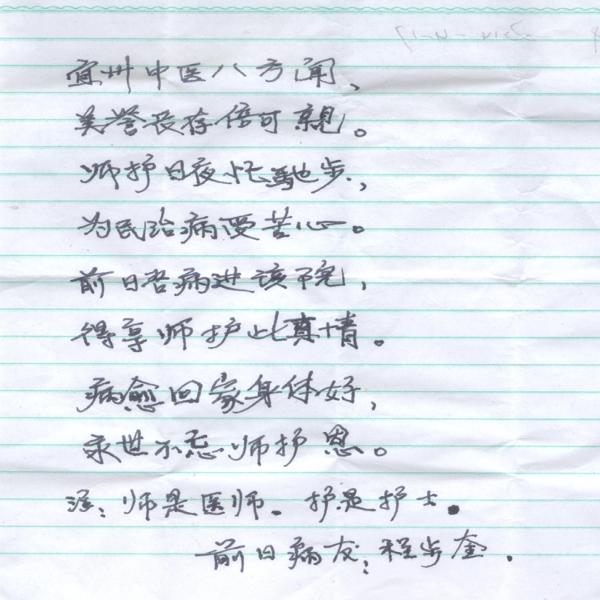 宜州中医八方闻、
美誉长存倍可亲。
师护日夜忙驰步，
为民治病受苦心。
前日吾病进该院，
得享师护此真情。
病愈回家身体好，
永世不忘师护恩。
注：师是医师。护是护士。
前日病友：程步奎．